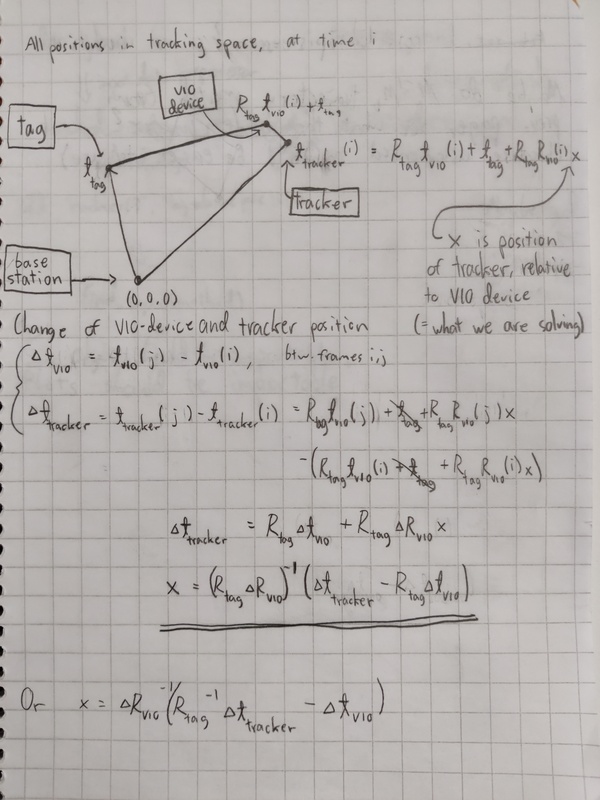 All positions in tracking space, at time i
VIO device
R_tag t_VIO(i) + t_tag
tag
t_tag
t_tracker(i) = R_tag t_VIO(i) + t_tag + R_tag R_VIO(i) x
tracker
x is position
of tracker, relative
to VIO device
(= what we are solving)
base station
(0,0,0)
Change of VIO-device and tracker position
Δt_VIO = t_VIO(j) - t_VIO(i), btw. frames i,j
Δt_tracker = t_tracker(j) - t_tracker(i) = R_tag t_VIO(j) + t_tag + R_tag R_VIO(j) x
-(R_tag t_VIO(i) + t_tag + R_tag R_VIO(i) x)
Δt_tracker = R_tag Δt_VIO + R_tag ΔR_VIO x
x = (R_tag ΔR_VIO)^-1 (Δt_tracker - R_tag Δt_VIO)
Or x = ΔR_VIO^-1 (R_tag^-1 Δt_tracker - Δt_VIO)